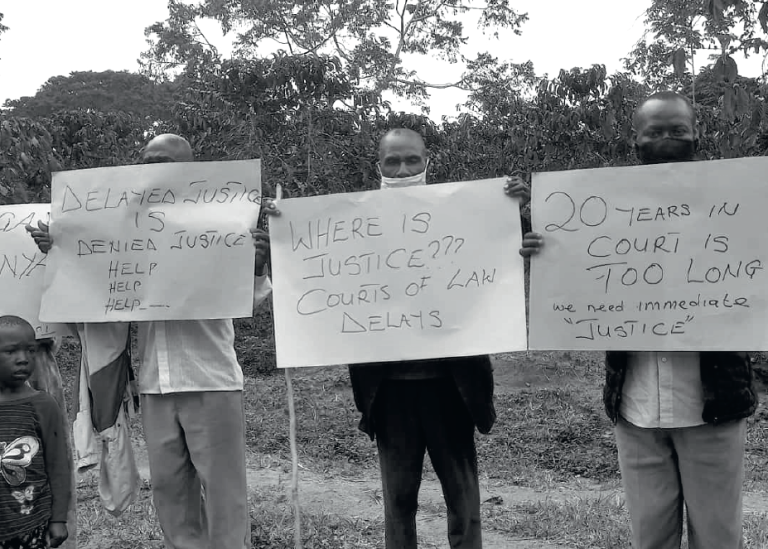 DELAYED JUSTICE
IS
DENIED JUSTICE
HELP
HELP
HELP_....
WHERE IS
JUSTICE???
COURTS OF LAW
DELAYS
20 YEARS IN
COURT IS
TOO LONG
we need immediate
"JUSTICE"